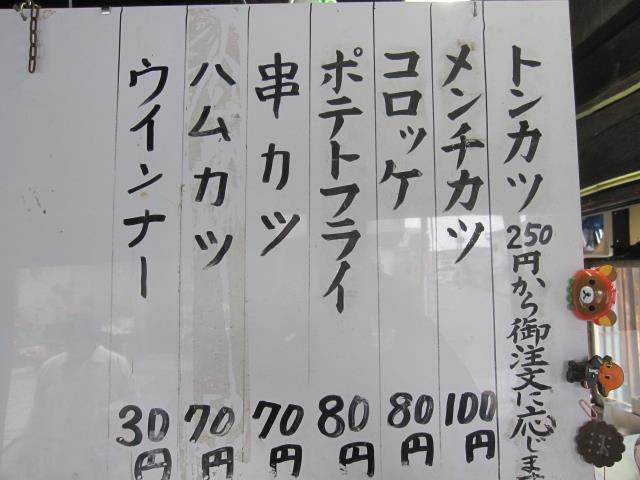 トンカツ 250円から御注文に応じま
メンチカツ 100円
コロッケ 80円
ポテトフライ 80円
串カツ 70円
ハムカツ 70円
ウインナー 30円